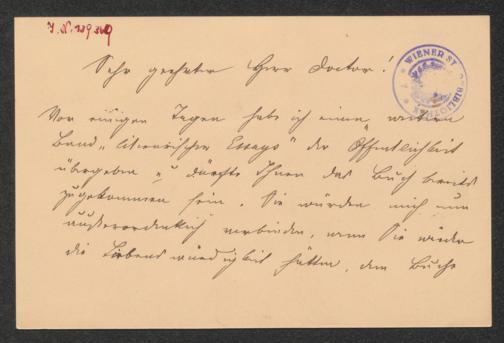 J. N. 129349
WIENER ST BIBLIOTHEK
Sehr geehrter Herr Doctor!
Vor einigen Tagen habe ich einen
Band „literarischer Essays" der Öffentlichkeit
übergeben u dürfte Ihnen das Buch bereits
zugekommen sein. Sie würden mich nun
außerordentlich verbinden, wenn Sie wieder
die Liebenswürdigkeit hätten, dem Buche